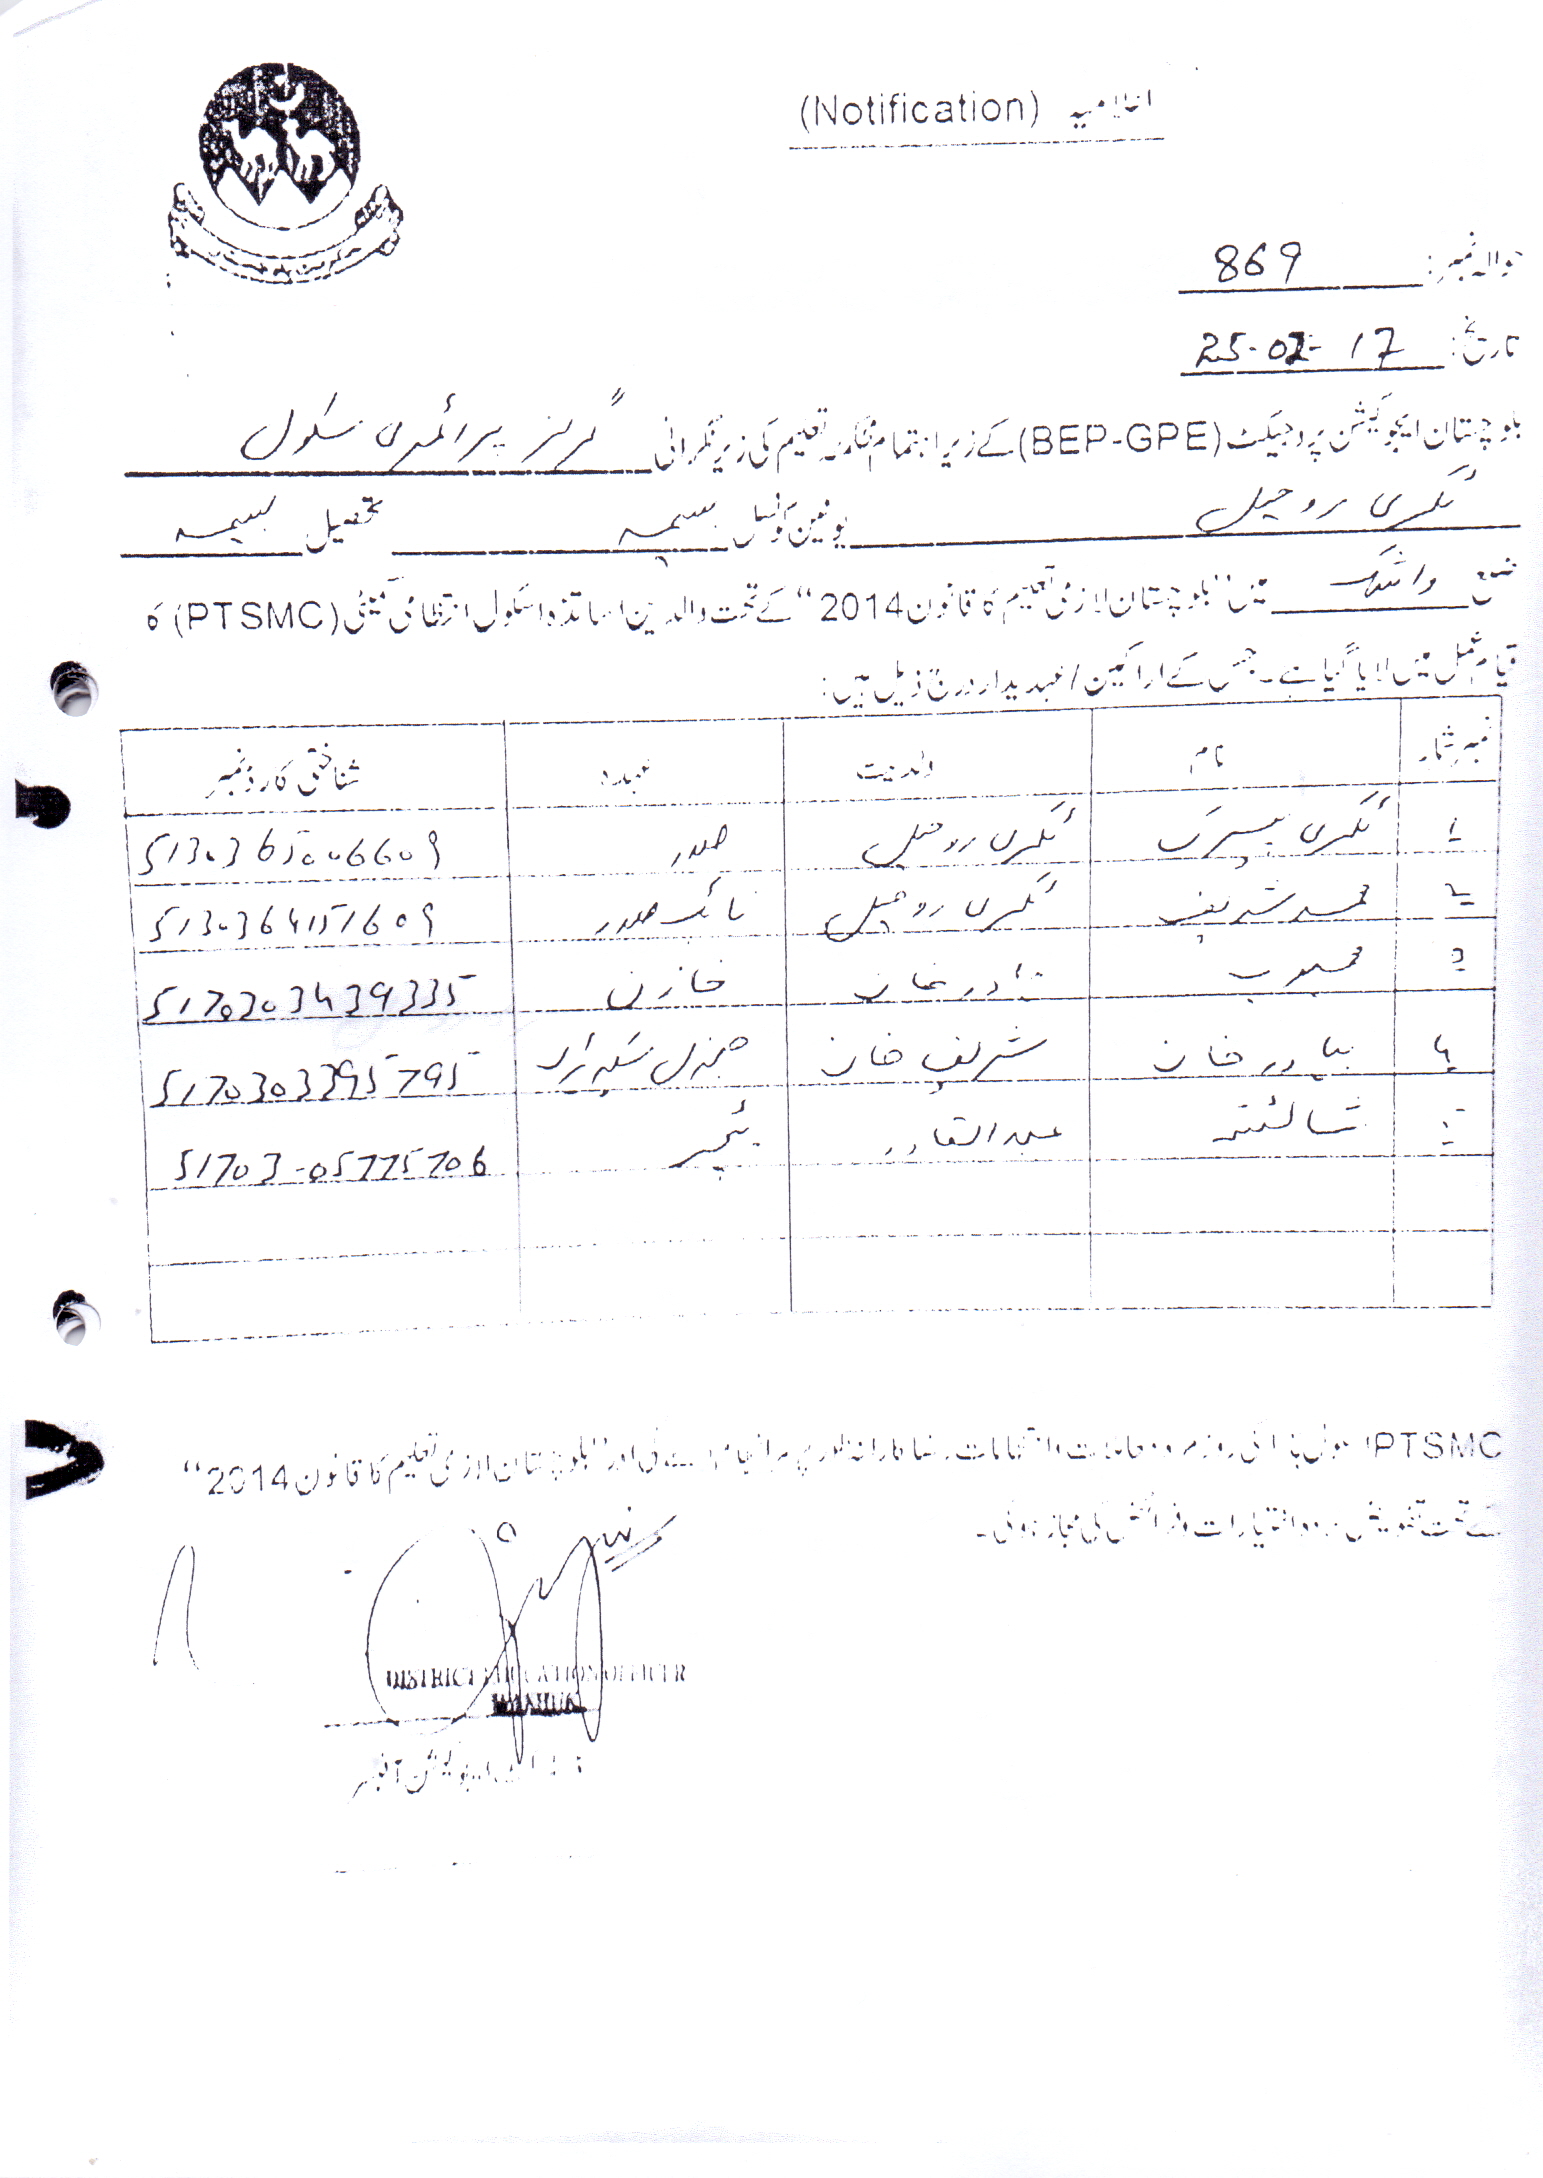 اعلامیہ (Notification)
حوالہ نمبر: 869
تاریخ: 25-02-17
بلوچستان ایجوکیشن پروجیکٹ (BEP-GPE) کے زیر اہتمام محکمہ تعلیم کی زیر نگرانی گرلز پرائمری سکول
روحیل یونین کونسل بسیمہ تحصیل بسیمہ
ضلع واشک میں "بلوچستان لازمی تعلیم کا قانون 2014" کے تحت والدین اساتذہ و اسکول انتظامی کمیٹی (PTSMC) کا
قیام عمل میں لایا گیا ہے۔ جس کے اراکین / عہدیدار درج ذیل ہیں:
نمبر شمار نام ولدیت عہدہ شناختی کارڈ نمبر
۱ صدر
۲ محمد شریف نائب صدر
۳ محبوب خازن 5170303439335
۴ بہادر خان شریف خان جنرل سیکرٹری 5170303395795
۵ شائستہ عبدالقادر ٹیچر 51703-05775706
PTSMC روزمرہ معاملات و انتظامات رضاکارانہ طور پر سرانجام دے گی اور "بلوچستان لازمی تعلیم کا قانون 2014"
کے تحت تفویض کردہ اختیارات و فرائض کی مجاز ہوگی۔
DISTRICT EDUCATION OFFICER
WASHUK
ڈسٹرکٹ ایجوکیشن آفیسر